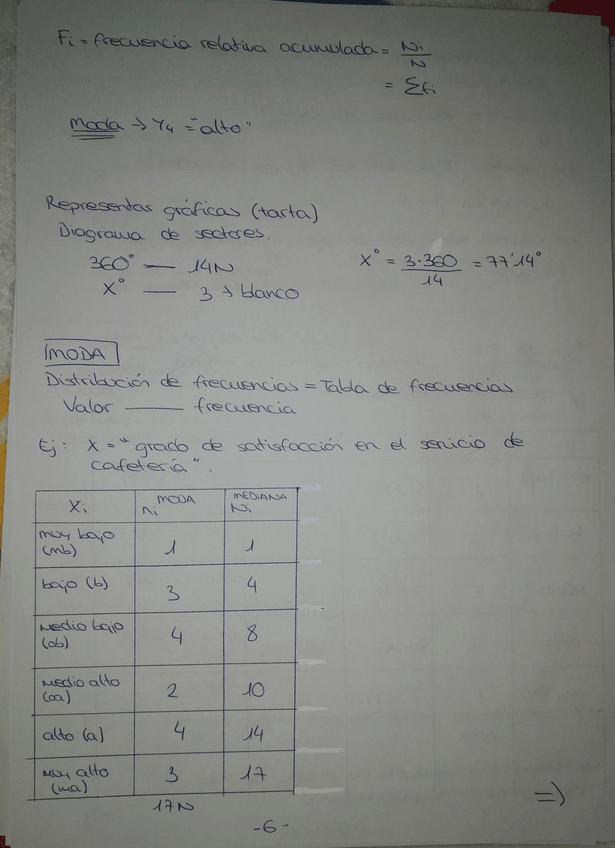 Fi = frecuencia relativa acumulada = Ni/N
= Σfi
Moda → Y4 = "alto"
Representas gráficas (tarta)
Diagrama de sectores.
360° — 14N
X° — 3 → blanco
X° = 3·360/14 = 77'14°
MODA
Distribución de frecuencias = Tabla de frecuencias
Valor — frecuencia
Ej: X = "grado de satisfacción en el servicio de
cafetería".
Xi MODA ni MEDIANA Ni
muy bajo (mb) 1 1
bajo (b) 3 4
medio bajo (ob) 4 8
medio alto (oa) 2 10
alto (a) 4 14
muy alto (ma) 3 17
17N
⇒
-6-